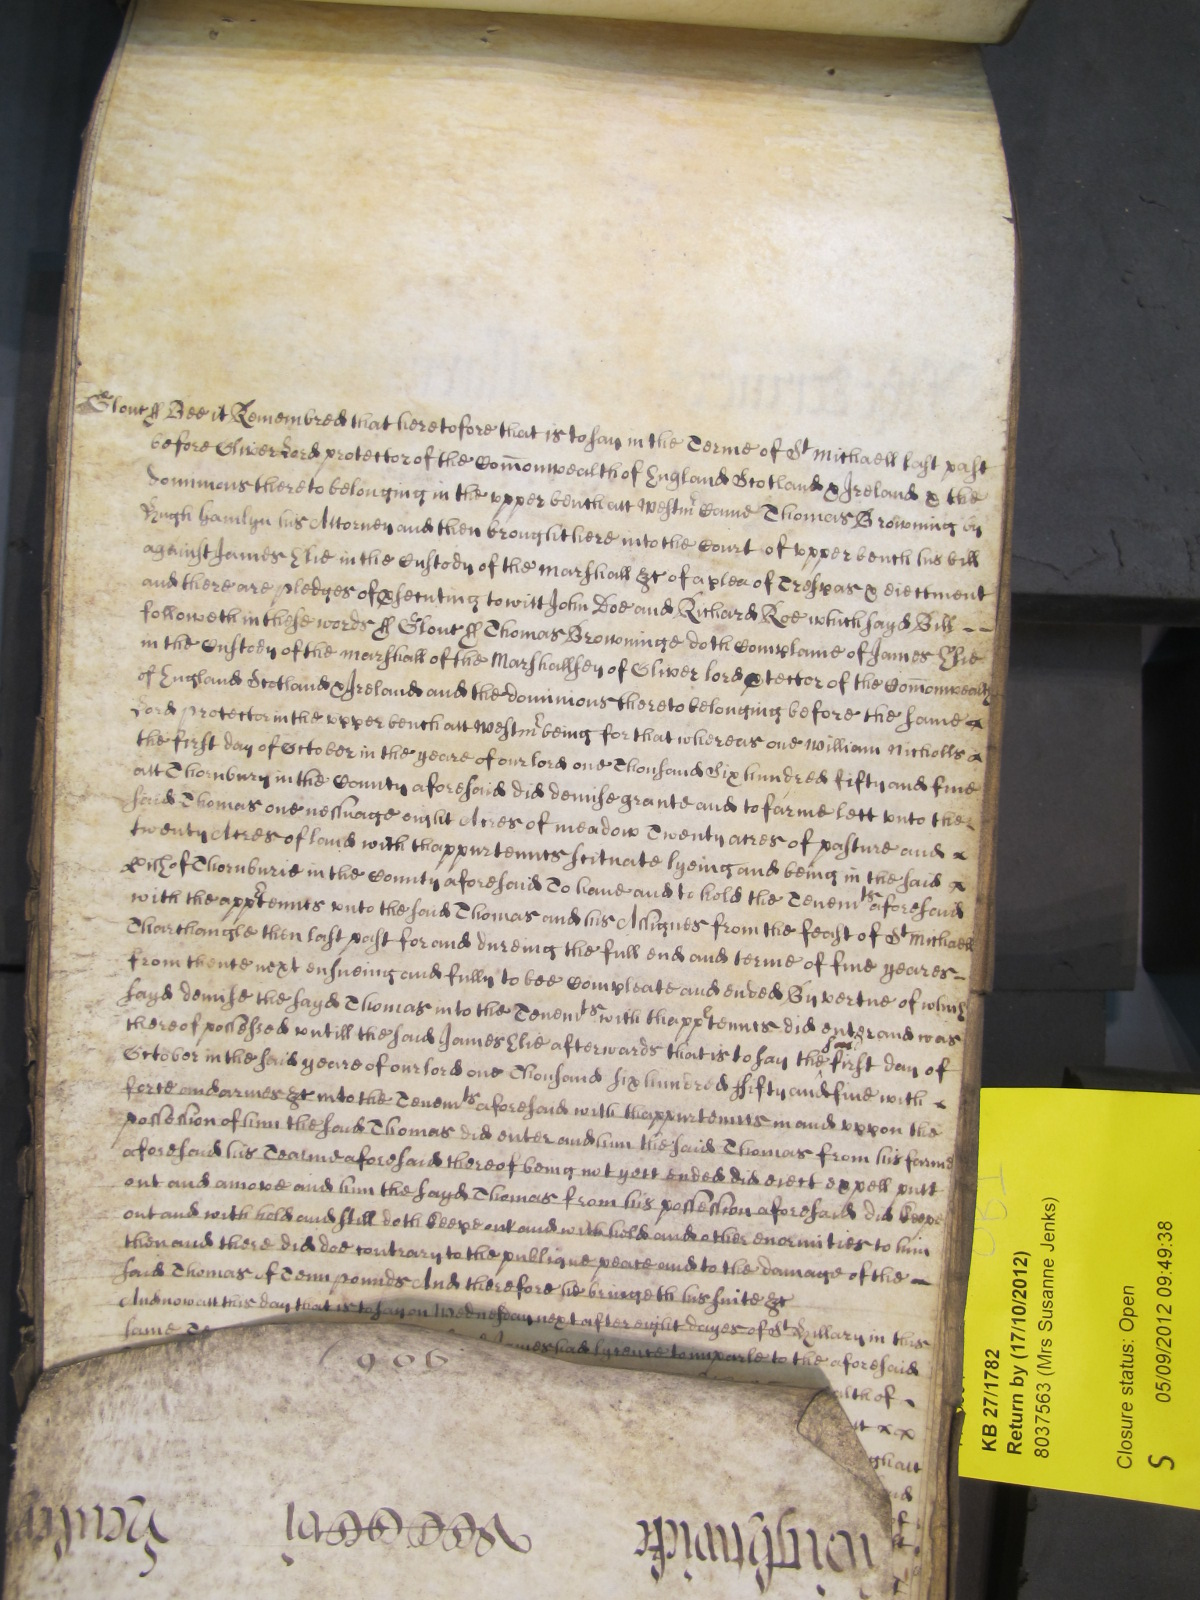 Glouc ss Bee it Remembred that heretofore that is to say in the Terme of St Michaell last past
before Oliver Lord protector of the Com̄onwealth of England Scotland & Ireland & the
dominions thereto belonging in the upper bench att Westmr Came Thomas Browning by
Hugh Hamlyn his Attorney and then brought here into the Court of upper bench his bill
against James Elie in the Custody of the Marshall &c of a plea of Trespas & eiectment
and there are pledges of prosecuting to witt John Doe and Richard Roe which sayd Bill
followeth in these words ss Glouc ss Thomas Browninge doth Complaine of James Elie
in the Custody of the marshall of the Marshallsey of Oliver lord protector of the Com̄onwealth
of England Scotland & Ireland and the dominions thereto belonging before the same
Lord protector in the upper bench att Westmr being for that whereas one William Nicholls
the first day of October in the yeare of our lord one Thousand Six hundred fifty and five
att Thornbury in the County aforesaid did demise grante and to farme lett unto the
said Thomas one messuage eight Acres of meadow Twenty acres of pasture and
twenty Acres of land with thappurtenncs scituate lyeing and being in the said
pish of Thornburie in the County aforesaid To have and to hold the Tenemts aforesaid
with the apprtenncs unto the said Thomas and his Assignes from the feast of St Michaell
Tharchangle then last past for and dureing the full end and terme of five yeares
from thence next ensueing and fully to bee Compleate and ended By vertue of which
sayd demise the sayd Thomas into the Tenemts with thapprtenncs did enter and was
thereof possessed untill the said James Elie afterwards that is to say the same first day of
October in the said yeare of our lord one Thousand six hundred ffifty and five with
force and armes &c into the Tenemts aforesaid with thappurtenncs in and uppon the
possession of him the said Thomas did enter and him the said Thomas from his farme
aforesaid his Tearme aforesaid thereof being not yett ended did eiect expell putt
out and amove and him the sayd Thomas from his possession aforesaid did keepe
out and with hold and still doth keepe out and with hold and other enormities to him
then and there did doe contrary to the publique peace and to the damage of the
said Thomas of Tenn pounds And therefore he bringeth his suite &c
And now att this day that is to say on Wednesday next after eight dayes of St Hillary in this
same Te James had lycence to imparle to the aforesaid
alth of
906
Wightwicke
KB 27/1782
Return by (17/10/2012)
8037563 (Mrs Susanne Jenks)
Closure status: Open
05/09/2012 09:49:38
S